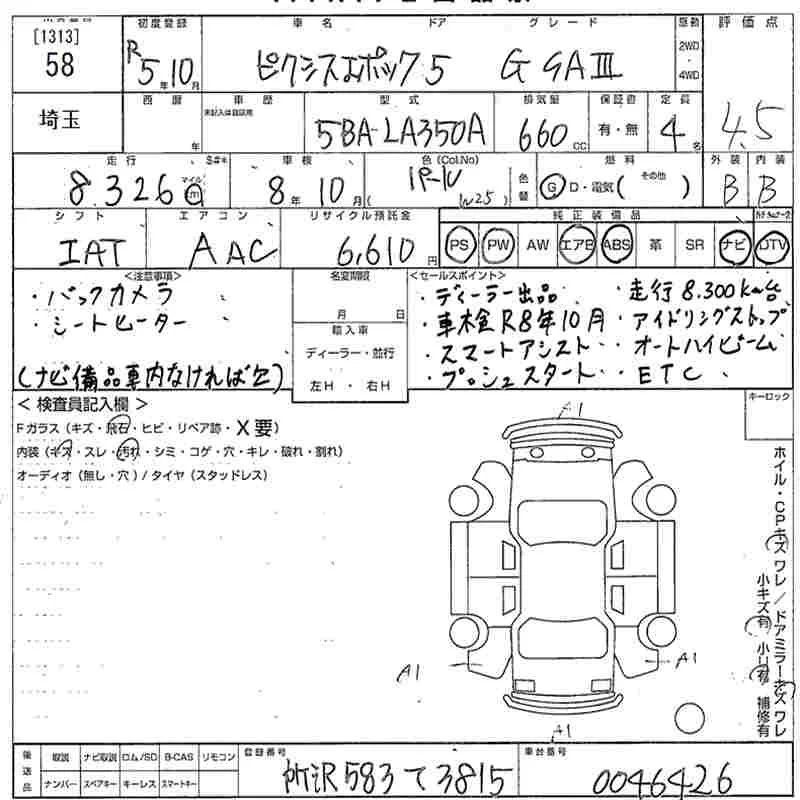 [1313]
58
初度登録
R5年10月
車名
ドア
グレード
ピクシスエポック 5 G SAⅢ
駆動
2WD
・
4WD
評価点
4.5
埼玉
西暦
年
車歴
未記入は自家用
型式
5BA-LA350A
排気量
660 CC
保証書
有・無
定員
4名
走行
S#*
8.326 マイル km
車検
8年10月
色(Col.No)
パール
(W25)
色替
燃料
G D・電気( その他 )
外装
B
内装
B
シフト
IAT
エアコン
AAC
リサイクル預託金
6,610円
純正装備品
PS PW AW エアB ABS 革 SR ナビ DTV
<注意事項>
・バックカメラ
・シートヒーター
(ナビ備品車内なければ欠)
名変期限
月 日
輸入車
ディーラー・並行
左H・右H
<セールスポイント>
・ディーラー出品 ・走行8.300km台
・車検R8年10月 ・アイドリングストップ
・スマートアシスト ・オートハイビーム
・プッシュスタート ・ETC
<検査員記入欄>
Fガラス(キズ・飛石・ヒビ・リペア跡・X要)
内装(キズ・スレ・汚れ・シミ・コゲ・穴・キレ・破れ・割れ)
オーディオ(無し・穴)/タイヤ(スタッドレス)
キーロック
A1
A1
A1
A1
ホイル・CPキズ ワレ/ドアミラーキズ ワレ
小キズ有 小凹有 補修有
後送品
取説 ナビ取説 ロム/SD B-CAS リモコン
ナンバー スペアキー キーレス スマートキー
登録番号
所沢583て3815
車台番号
0046426